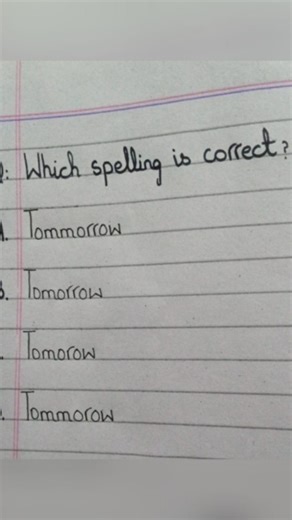 Which spelling is correct?
Tommorrow
Tomorrow
Tomorow
Tommorow